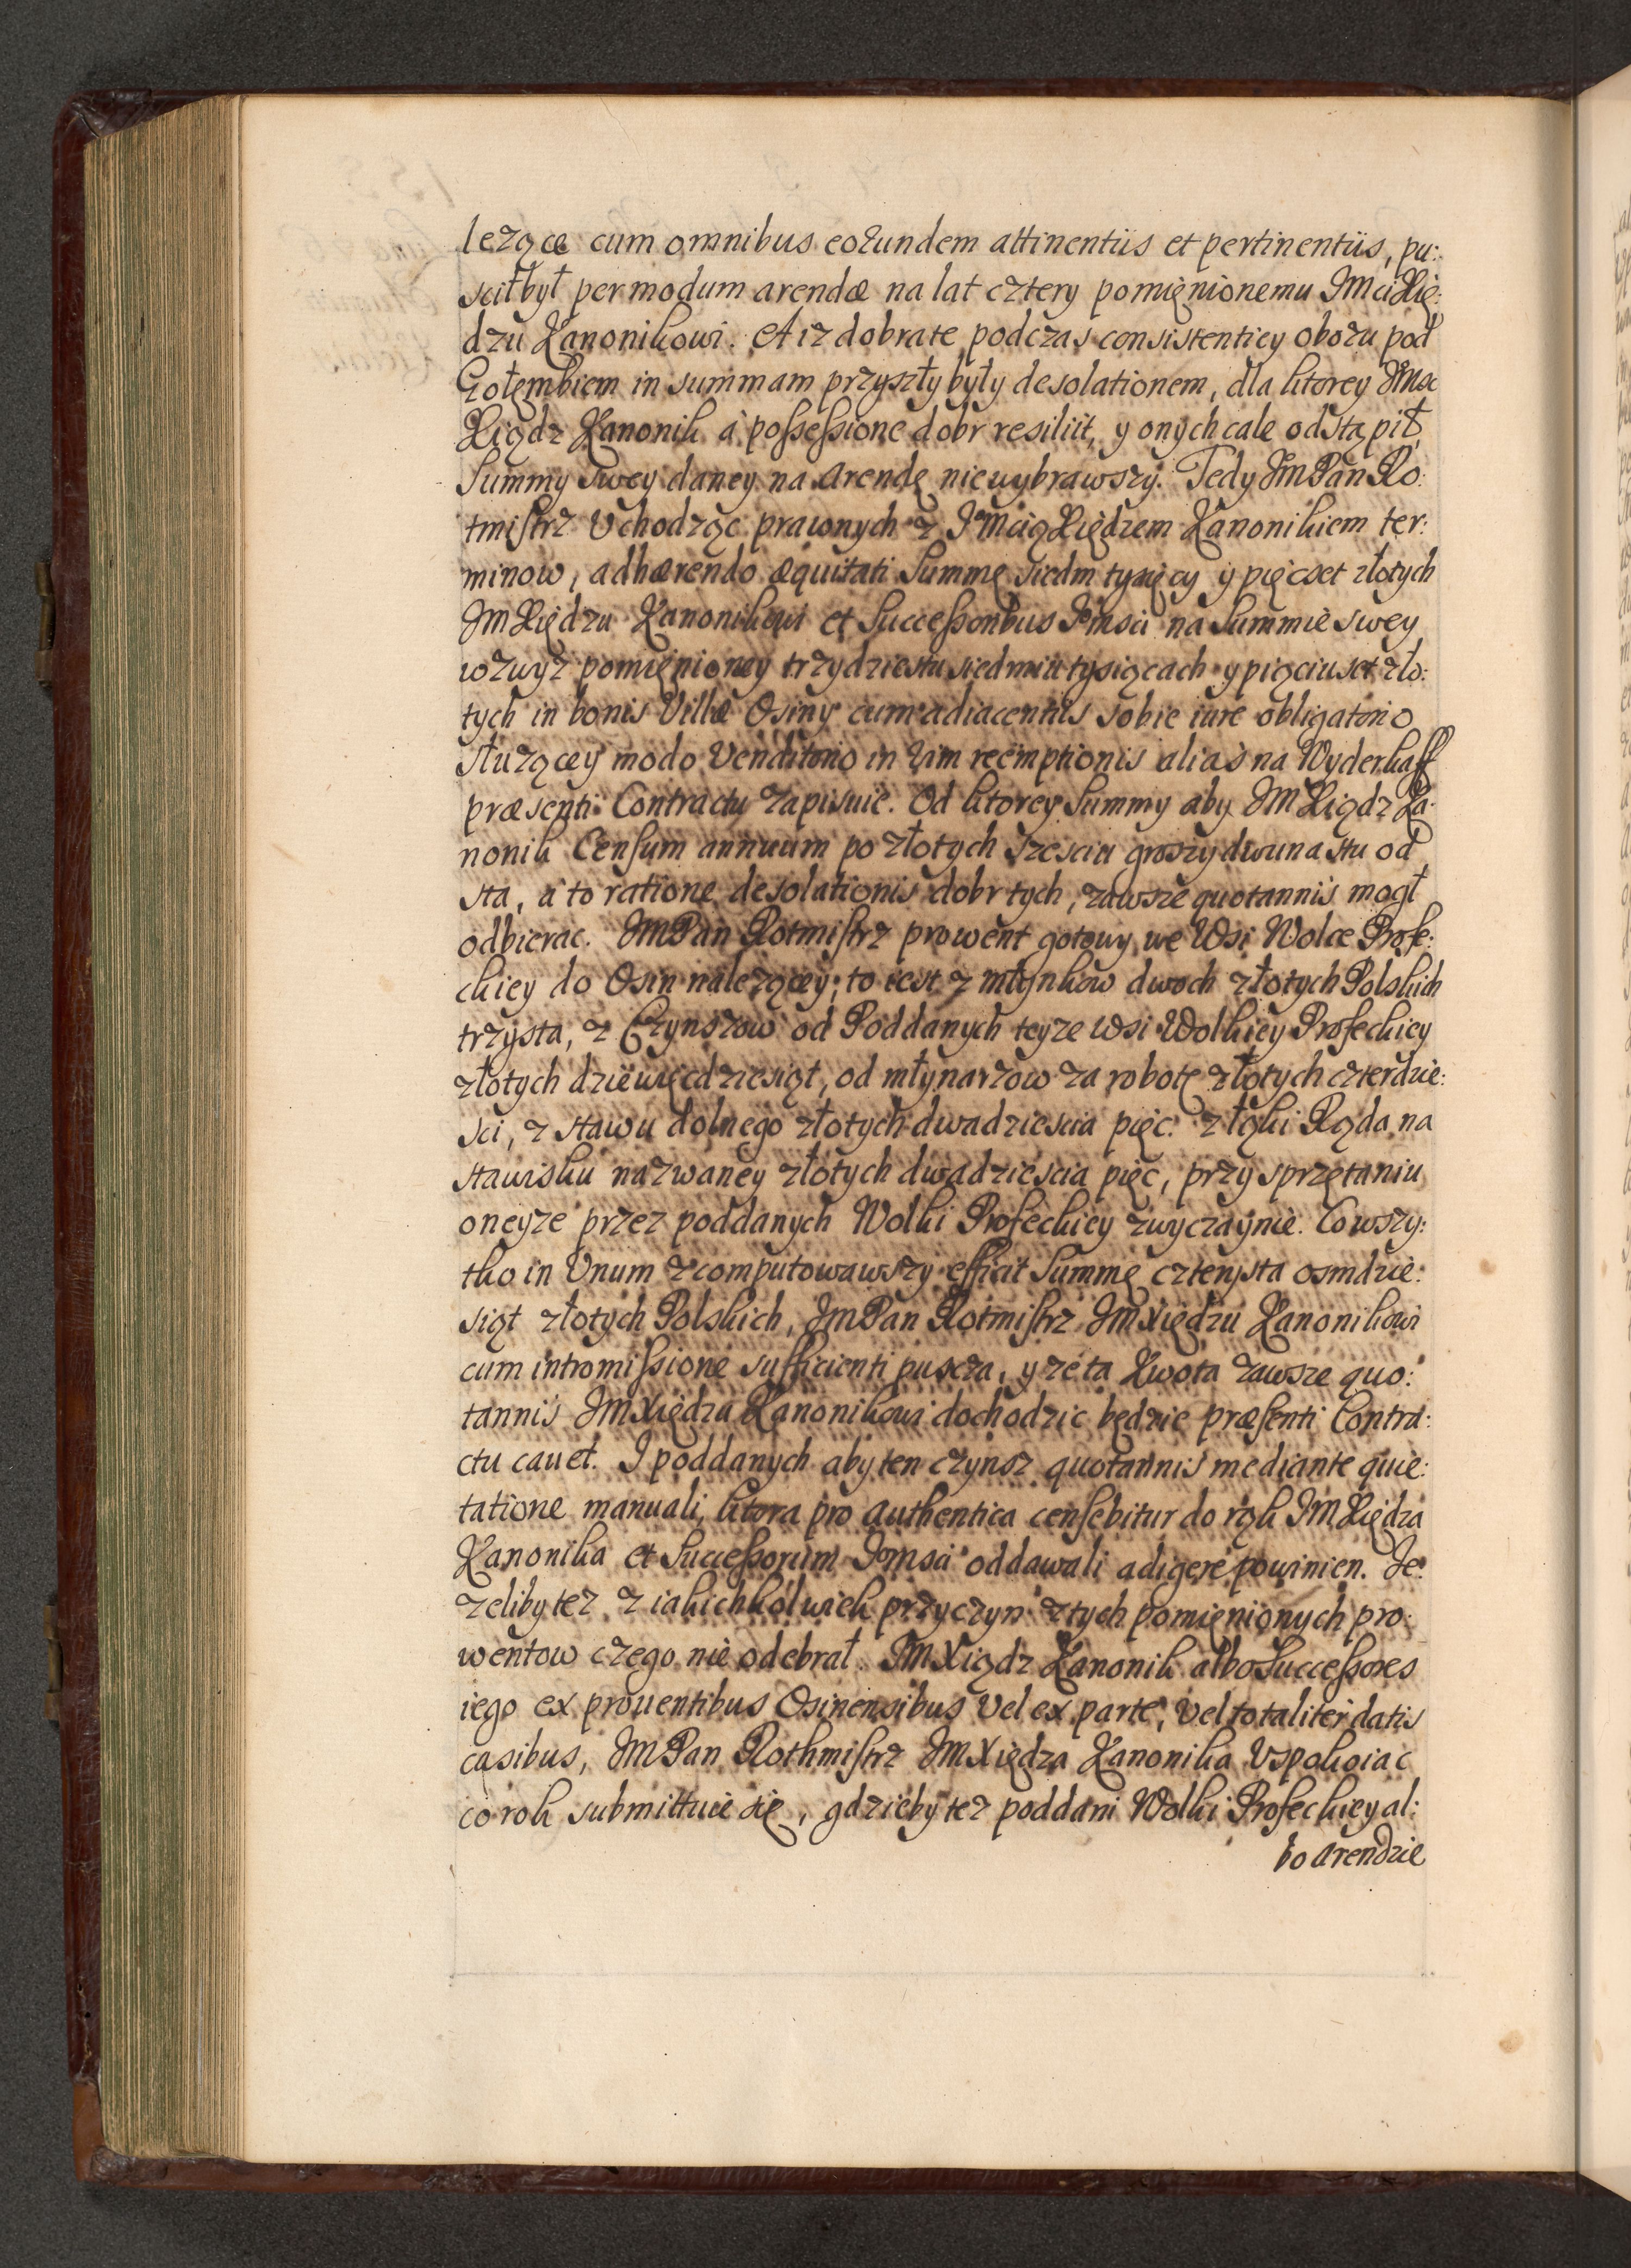 lezące cum omnibus eorundem attinentiis et pertinentiis, pu:
scił był per modum arendæ na lat cztery pomięnionemu JMci Xię:
dzu Kanonikowi. A iz dobra te podczas consistentiey obozu pod
Gołęmbiem in summam przyszły były desolationem, dla ktorey JMsc
Xiądz Kanonik à possessione dobr resiliit, y onych cale odstąpił,
Summy swey daney na Arendę nie wybrawszy. Tedy JmPan Ro:
tmistrz Vchodząc prawnych z JeMcią Xiędzem Kanonikiem ter:
minow, adhærendo æquitati Summę siedm tysięcy y pięcset złotych
JM Xiędzu Kanonikowi et Successoribus Jomsci na Summie swey
wzwyz pomięnioney trzydziestu siedmiu tysiącach y pięciuset zło:
tych in bonis Villæ Osiny cum adiacentiis sobie iure obligatorio
słuzącey modo Venditorio in vim reëmptionis alias na Wyderkaff
præsenti Contractu zapisuie. Od ktorey Summy aby JM Xiądz Ka:
nonik Censum annuum po złotych szesciu groszy dwunastu od
sta, a to ratione desolationis dobr tych, zawsze quotannis mogł
odbierac. JMPan Rotmistrz prowent gotowy we Wsi Wolce Profe:
ckiey do Osin nalezącey; to iest z młynkow dwoch złotych Polskich
trzysta, z Czynszow od Poddanych teyze Wsi Wolkiey Profeckiey
złotych dziewięcdziesiąt, od młynarzow za robotę złotych czterdzie:
sci, z stawu dolnego złotych dwadziescia pięc. z łąki Rząda na
stawisku nazwaney złotych dwadziescia pięc, przy sprzętaniu
oneyze przez poddanych Wolki Profeckiey zwyczaynie. Co wszy:
tko in Vnum zcomputowawszy efficit Summę czterysta osmdzie:
siąt złotych Polskich, JmPan Rotmistrz JMXiędzu Kanonikowi
cum intromissione sufficienti puscza, y ze ta Kwota zawsze quo:
tannis JMXiędzu Kanonikowi dochodzic będzie præsenti Contra:
ctu cauet. I poddanych aby ten czynsz quotannis mediante quie:
tatione manuali, ktora pro authentica censebitur do rąk JM Xiędza
Kanonika et Successorum Jomsci oddawali adigere powinien. Je:
zeliby tez z iakichkolwiek przyczyn z tych pomięnionych pro:
wentow czego nie odebrał JMXiądz Kanonik albo Successores
iego ex prouentibus Osinensibus Vel ex parte, Vel totaliter datis
casibus, JMPan Rothmistrz JMXiędza Kanonika Vspokoiac
co rok submittuie się, gdzieby tez poddani Wolki Profeckiey al:
bo Arendzie